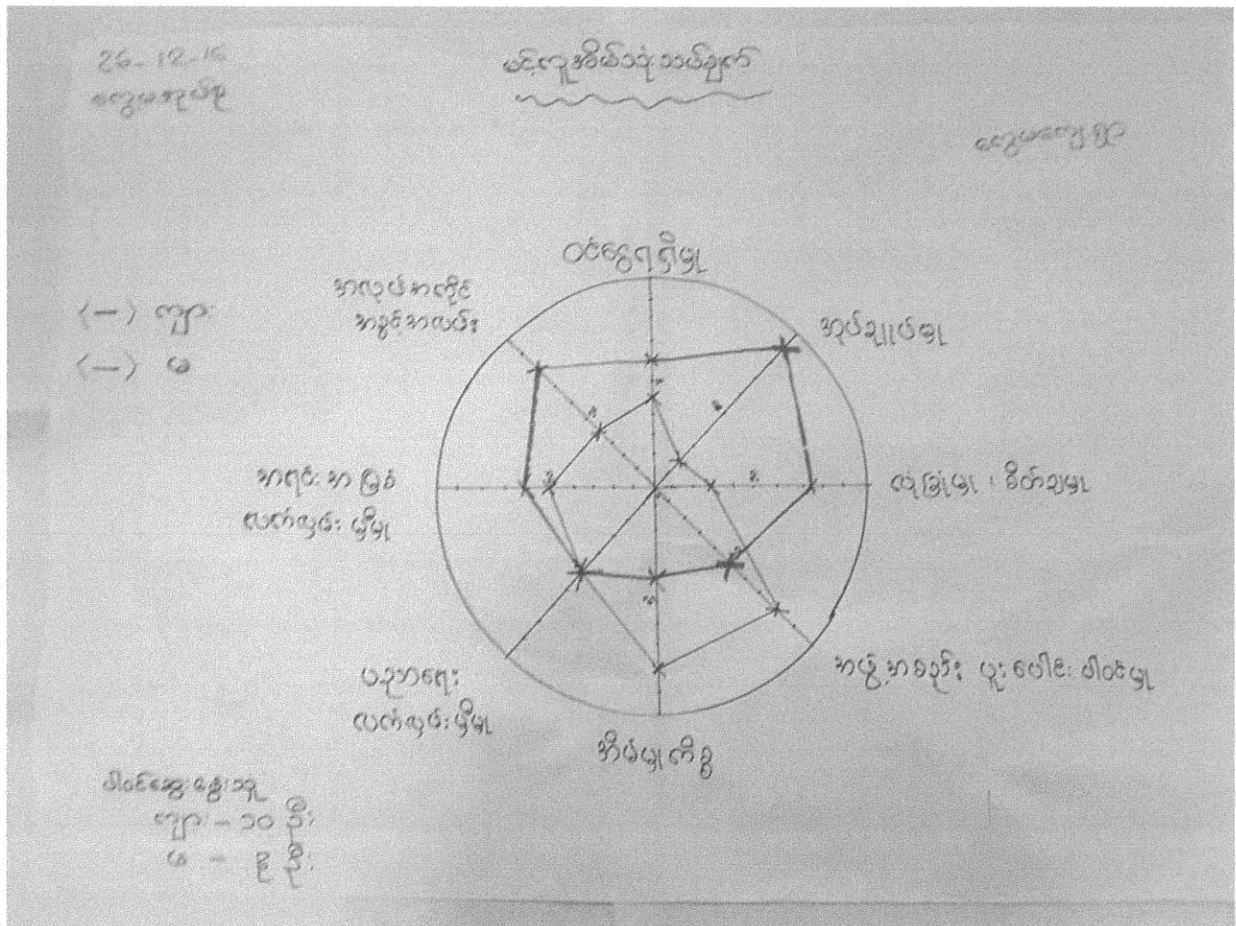 26-12-16
ကျေးရွာအုပ်စု
မင့်ကူအိမ်သုံးသပ်ချက်
ဝင်ငွေရရှိမှု
အလုပ်အကိုင်
အခွင့်အလမ်း
(–) ကျား
(–) မ
အုပ်ချုပ်မှု
အရင်းအမြစ်
လက်လှမ်းမှီမှု
လုံခြုံမှု ၊ စိတ်ချမှု
ပညာရေး
လက်လှမ်းမှီမှု
အဖွဲ့အစည်း ပူးပေါင်းပါဝင်မှု
အိမ်မှုကိစ္စ
ပါဝင်ဆွေးနွေးသူ
ကျား – ၁၀ ဦး
မ – ၃ ဦး